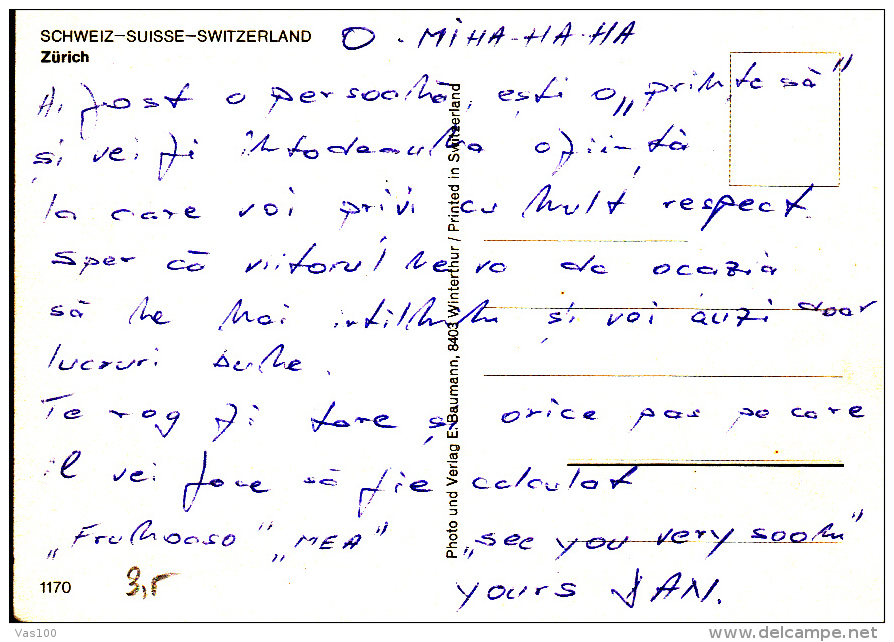 SCHWEIZ–SUISSE–SWITZERLAND O - MIHA-HA-HA
Zürich
Ai fost o persoană, ești o „prințesă”
și vei fi întodeauna o ființă
la care voi privi cu mult respect.
Sper că viitorul ne va da ocazia
să ne mai intîlnim și voi auzi doar
lucruri bune.
Te rog fi tare și orice pas pe care
îl vei face să fie calculat
„Frumoaso” „MEA” „see you very soon”
yours JAN.
1170 3,5
Photo und Verlag E. Baumann, 8403 Winterthur / Printed in Switzerland
Vas100
delcampe.net